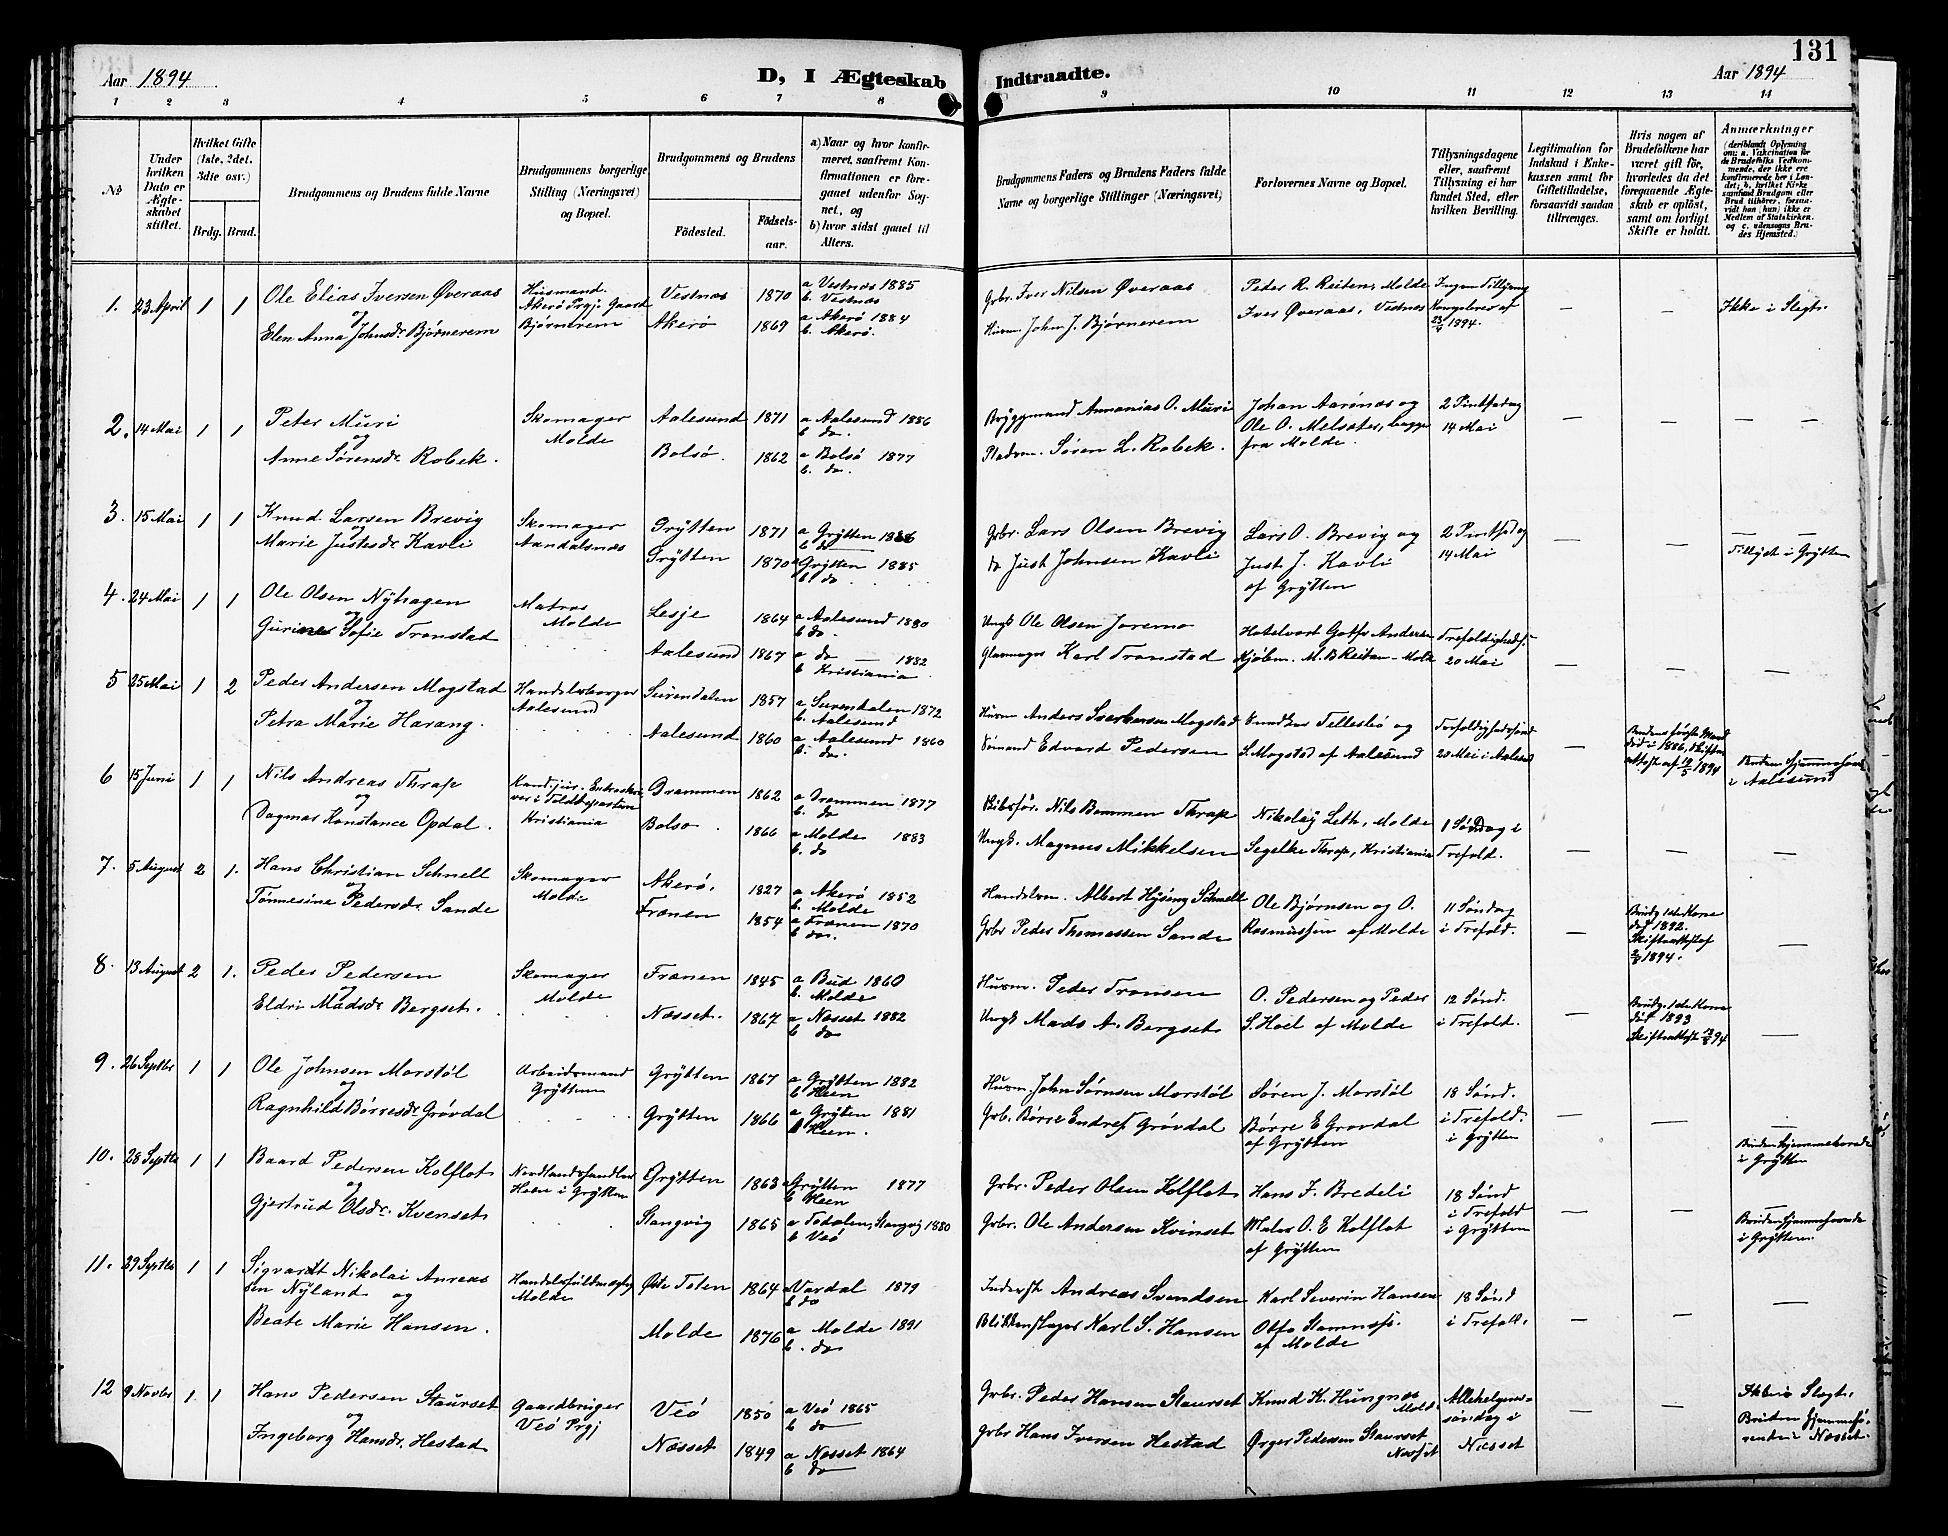 Aar 1894
D, I Ægteskab Indtraadte.
131
Aar 1894
1 2 3 4 5 6 7 8 9 10 11 12 13 14
No
Under hvilken Dato er Ægteskabet stiftet.
Hvilket Gifte (1ste, 2det, 3die osv.)
Brdg. Brud.
Brudgommens og Brudens fulde Navne
Brudgommens borgerlige Stilling (Næringsvei) og Bopæl.
Brudgommens og Brudens
Födested.
Födsels-aar.
a) Naar og hvor konfirmeret, saafremt Konfirmationen er foregaaet udenfor Sognet, og
b) hvor sidst gaaet til Alters.
Brudgommens Faders og Brudens Faders fulde Navne og borgerlige Stillinger (Næringsvei)
Forlovernes Navne og Bopæl.
Tillysningsdagene eller, saafremt Tillysning ei har fundet Sted, efter hvilken Bevilling.
Legitimation for Indskud i Enkekassen samt for Giftetilladelse, forsaavidt saadan tiltrænges.
Hvis nogen af Brudefolkene har været gift för, hvorledes da det foregaaende Ægteskab er oplöst, samt om lovligt Skifte er holdt.
Anmærkninger
(deriblandt Oplysning om: a. Vakcination for de Brudefolks Vedkommende, der ikke ere konfirmerede her i Landet; b. hvilket Kirkesamfund Brudgom eller Brud tilhörer, forsaavidt han (hun) ikke er Medlem af Statskirken, og c. udensogns Brudes Hjemsted.)
1. 23 April 1 1 Ole Elias Iversen Øveraas og Elen Anna Johnsdr Bjørnerem
Husmand. Akerø Prgj. Gaard Bjørnerem
Vestnes 1870 a Vestnes 1885 b. Vestnes
Akerø 1869 a Akerø 1884 b. Akerø.
Grbr. Iver Nilsen Øveraas
Husm. John J. Bjørnerem
Peder R. Reiten, Molde
Iver Øveraas, Vestnes
Ingen Tillysng Kongebrev af 23/4 1894.
— — Ikke i Slegt.
2. 14 Mai 1 1 Peter Muri og Anne Sørensdr Robek.
Skomager Molde
Aalesund 1871 a Aalesund 1886 b do.
Bolsø. 1862 a Bolsø 1877 b. do.
Bryggemand Annanias O. Muri
Pladsm. Søren L. Robek.
Johan Aarønæs og Ole O. Melsæter, begge fra Molde.
2 Pintsedag 14 Mai
— — — —
3. 15 Mai 1 1 Knud Larsen Brevig og Marie Justesdr Kavli
Skomager Aandalsnæs
Grytten 1871 a Grytten 1886 b do
Grytten 1870 a Grytten 1885 b do
Grbr. Lars Olsen Brevig
do Just Johnsen Kavli
Lars O. Brevig og Just J. Kavli af Grytten
2 Pintsedag 14 Mai
— — — —
Tillyst i Grytten
4. 24 Mai 1 1 Ole Olsen Nyhagen og Gurine Sofie Tronstad
Matros Molde
Lesje 1864 a Aalesund 1880 b do
Aalesund 1867 a do 1882 b Kristiania
Ungk Ole Olsen Joremo
Glasmager Karl Tronstad
Hotelvært Gotfr Andersen
Kjøbm. M. B Reitan - Molde
Trefoldighedsf. 20 Mai
— — —
5 25 Mai 1 2 Peder Andersen Mogstad og Petra Marie Harang.
Handelsborger Aalesund
Surendalen 1857 a Surendalen 1872 b. Aalesund
Aalesund 1860 a Aalesund 1860 b. do
Husm Anders Sverkersen Mogstad
Sømand Edvard Pedersen
S. Mogstad af Aalesund
20 Mai i Aalesd
—
Brudens første Mand død i 1886, Skifteattest af 19/5 1894
Brudens Hjemmehørende i Aalesund
6 15 Juni 1 1 Nils Andreas Thrap og Dagmar Konstance Opdal.
Kand. jur. Kristiania
Drammen 1862 a Drammen 1877 b. do
Bolsø 1866 a Molde 1883 b. do
Skibsfør. Nils Bommen Thrap
Ungk. Magnus Mikkelsen
Nikolay Leth, Molde
Segelke Thrap, Kristiania
1 Søndag i Trefold.
— — —
7. 5 August 2 1. Hans Christian Schnell og Tønnesine Pedersdr Sande
Skomager Molde
Akerø. 1827 a Akerø 1852 b. Molde
Frænen 1854 a Frænen 1870 b. do.
Handelsm. Albert Hysing Schnell
Grbr Peder Thomassen Sande
Ole Bjørnsen og O. Rasmussen af Molde
11 Søndag i Trefold.
—
Brudg 1ste Kone død 1892. Skifteattest af 1894.
—
8. 13 August 2 1. Peder Pedersen og Eldri Madsdr Bergset.
Skomager Molde
Frænen 1845 a Bud 1860 b. Molde
Næsset. 1867 a Næsset 1882 b do
Husm. Peder Tronsen
Ungk Mads A. Bergset
O. Pedersen og Peder S. Hoel af Molde
12 Sønd. i Trefold.
—
Brudg. 1ste Kone død 1893 Skifteattest 94
—
9. 26 Septbr 1 1 Ole Johnsen Morstøl og Ragnhild Børresdr Grøvdal
Arbeidsmand Grytten
Grytten 1867 a Grytten 1882 b Heen
Grytten 1866 a Grytten 1881 b Heen.
Husm. John Sørnsen Morstøl
Grb. Børre Endres. Grøvdal
Søren J. Morstøl
Børre E Grøvdal af Grytten
18 Sønd. i Trefold. i Grytten
— — —
Bruden hjemmehørende i Grytten
10. 28 Septbr 1 1 Baard Pedersen Kolflot og Gjertrud Olsdr. Kvenset
Nordlandshandler Heen i Grytten
Grytten 1863 a Grytten 1877 b Heen
Stangvig 1865 a Todalen, Stangvig 1880 b Veø
Grbr. Peder Olsen Kolflot
Grbr. Ole Andersen Kvinset
Hans J. Bredeli
Maler O. E Kolflot af Grytten
18 Sønd i Trefold i Grytten
— — —
Bruden hjemmehørende i Grytten
11. 29 Septbr 1 1 Sigvardt Nikolai Anreassen Nyland og Beate Marie Hansen.
Handelsfuldmægtig Molde
Østre Toten 1864 a Vardal 1879 b do
Molde 1876 a Molde 1891 b. do
Inderst Andreas Svendsen
Blikkenslager Karl S. Hansen
Karl Severin Hansen
Otto Stamnæs. af Molde
18 Sønd i Trefol.
— — —
12 9 Novbr 1. 1 Hans Pedersen Staurset og Ingeborg Hansdr. Hestad
Gaardbruger Veø Prgj
Veø 1850 a Veø 1865 b do
Næsset 1849 a Næsset 1864 b do
Grbr. Peder Hansen Staurset
Grbr Hans Iversen Hestad
Knud K. Hungnes Molde
Ørger Pedersen Staurset Næsset
Allehelgenssøndag i Næsset
— —
Ikke i Slegt.
Bruden hjemmehørende i Næsset.